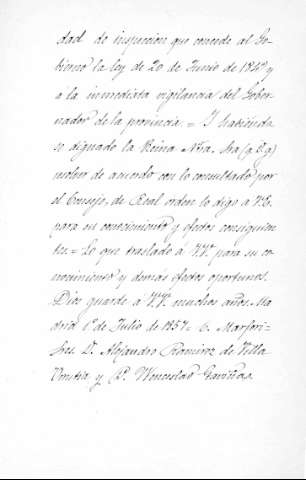 dad de inspeccion que concede al Go-
bierno la ley de 20 de Junio de 1849 y
á la inmediata vigilancia del Gober-
nador de la provincia = Y habiendo
se dignado la Reina Ntra. Sra (q. D. g)
de acuerdo con lo consultado por
el Consejo, de Real orden lo digo á V.E.
para su conocimiento y efectos consiguien
tes = Lo que traslado á VV. para su co-
nocimiento y demás efectos oportunos.
Dios guarde á VV. muchos años. Ma
drid 1º de Julio de 1857 = C. Marfori =
Sres. D. Alejandro Ramirez de Villa
Urrutia y D. Wenceslao Gaviñas.